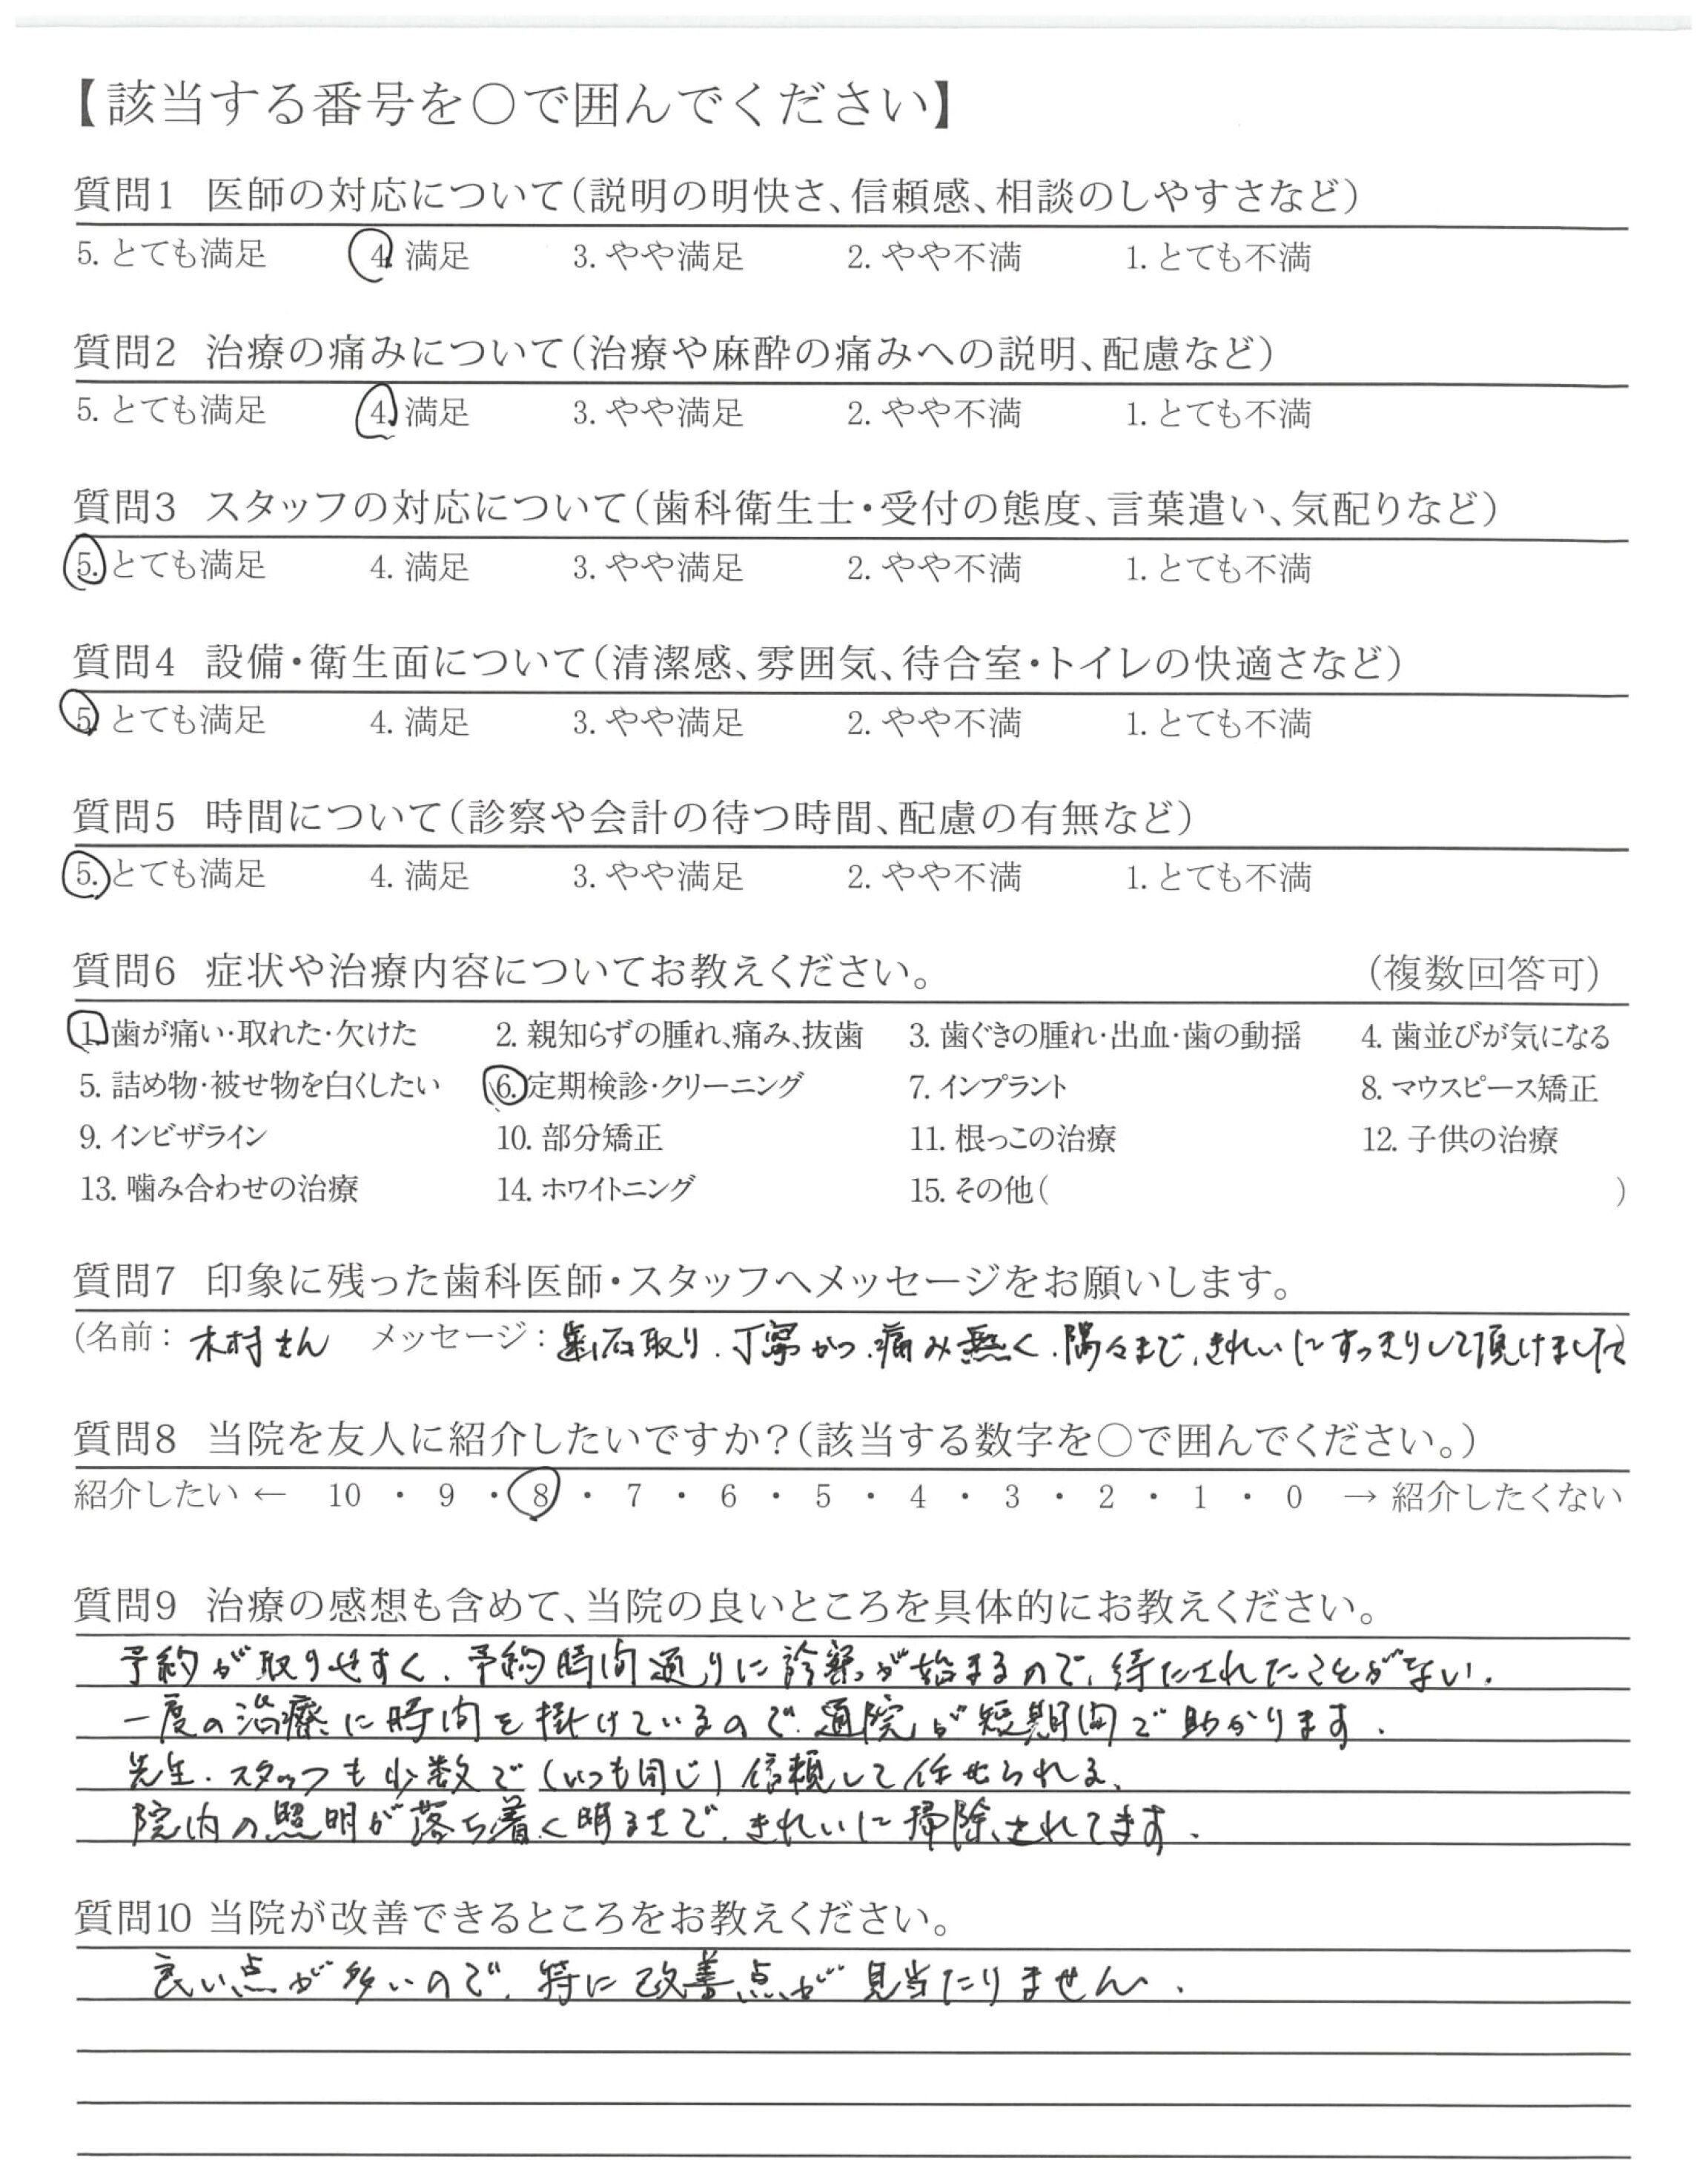 【該当する番号を○で囲んでください】
質問1 医師の対応について(説明の明快さ、信頼感、相談のしやすさなど)
5. とても満足 4. 満足 3. やや満足 2. やや不満 1. とても不満
質問2 治療の痛みについて(治療や麻酔の痛みへの説明、配慮など)
5. とても満足 4. 満足 3. やや満足 2. やや不満 1. とても不満
質問3 スタッフの対応について(歯科衛生士・受付の態度、言葉遣い、気配りなど)
5. とても満足 4. 満足 3. やや満足 2. やや不満 1. とても不満
質問4 設備・衛生面について(清潔感、雰囲気、待合室・トイレの快適さなど)
5. とても満足 4. 満足 3. やや満足 2. やや不満 1. とても不満
質問5 時間について(診察や会計の待つ時間、配慮の有無など)
5. とても満足 4. 満足 3. やや満足 2. やや不満 1. とても不満
質問6 症状や治療内容についてお教えください。 (複数回答可)
1. 歯が痛い・取れた・欠けた 2. 親知らずの腫れ、痛み、抜歯 3. 歯ぐきの腫れ・出血・歯の動揺 4. 歯並びが気になる
5. 詰め物・被せ物を白くしたい 6. 定期検診・クリーニング 7. インプラント 8. マウスピース矯正
9. インビザライン 10. 部分矯正 11. 根っこの治療 12. 子供の治療
13. 噛み合わせの治療 14. ホワイトニング 15. その他( )
質問7 印象に残った歯科医師・スタッフへメッセージをお願いします。
(名前: 木村さん メッセージ: 歯石取り、丁寧かつ、痛み無く、隅々まで、きれいにすっきりして頂けました)
質問8 当院を友人に紹介したいですか?(該当する数字を○で囲んでください。)
紹介したい ← 10 ・ 9 ・ 8 ・ 7 ・ 6 ・ 5 ・ 4 ・ 3 ・ 2 ・ 1 ・ 0 → 紹介したくない
質問9 治療の感想も含めて、当院の良いところを具体的にお教えください。
予約が取りやすく、予約時間通りに診察が始まるので、待たされたことがない。
一度の治療に時間を掛けているので、通院が短期間で助かります。
先生・スタッフも少数で(いつも同じ)信頼して任せられる。
院内の照明が落ち着く明るさで、きれいに掃除されてます。
質問10 当院が改善できるところをお教えください。
良い点が多いので、特に改善点が見当たりません。